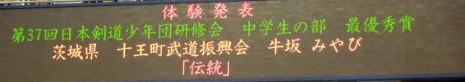 体験発表
第37回日本剣道少年団研修会　中学生の部　最優秀賞
茨城県　十王町武道振興会　牛坂 みやび
「伝統」